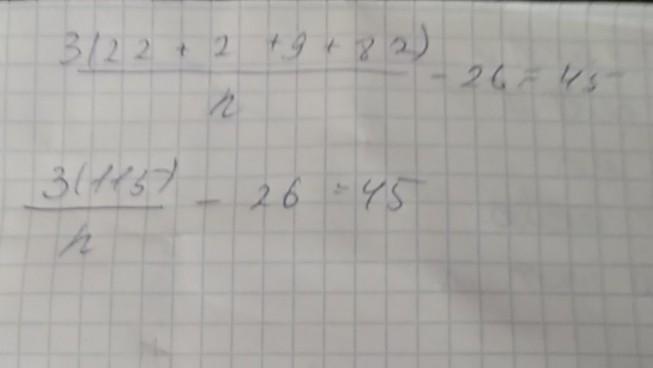 3(22 + 2 + 9 + 82)
n
- 26 = 45
3(115)
n
- 26 = 45